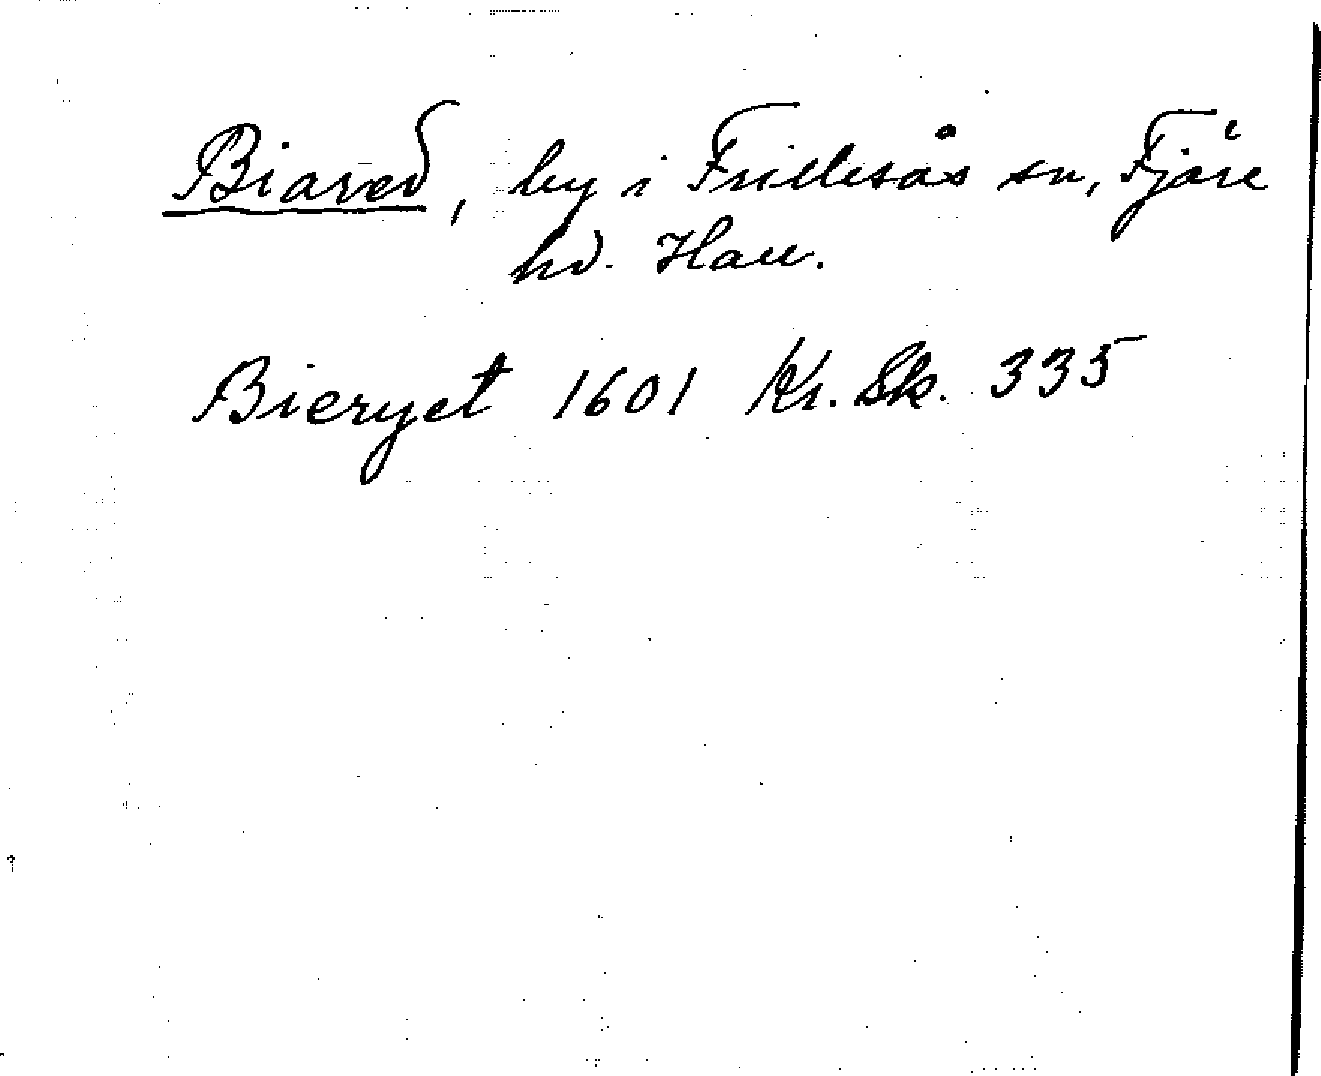 Biared, by i Frillesås sn, Fjäre
hd. Hall.
Bieryet 1601 Kr. Sk. 335